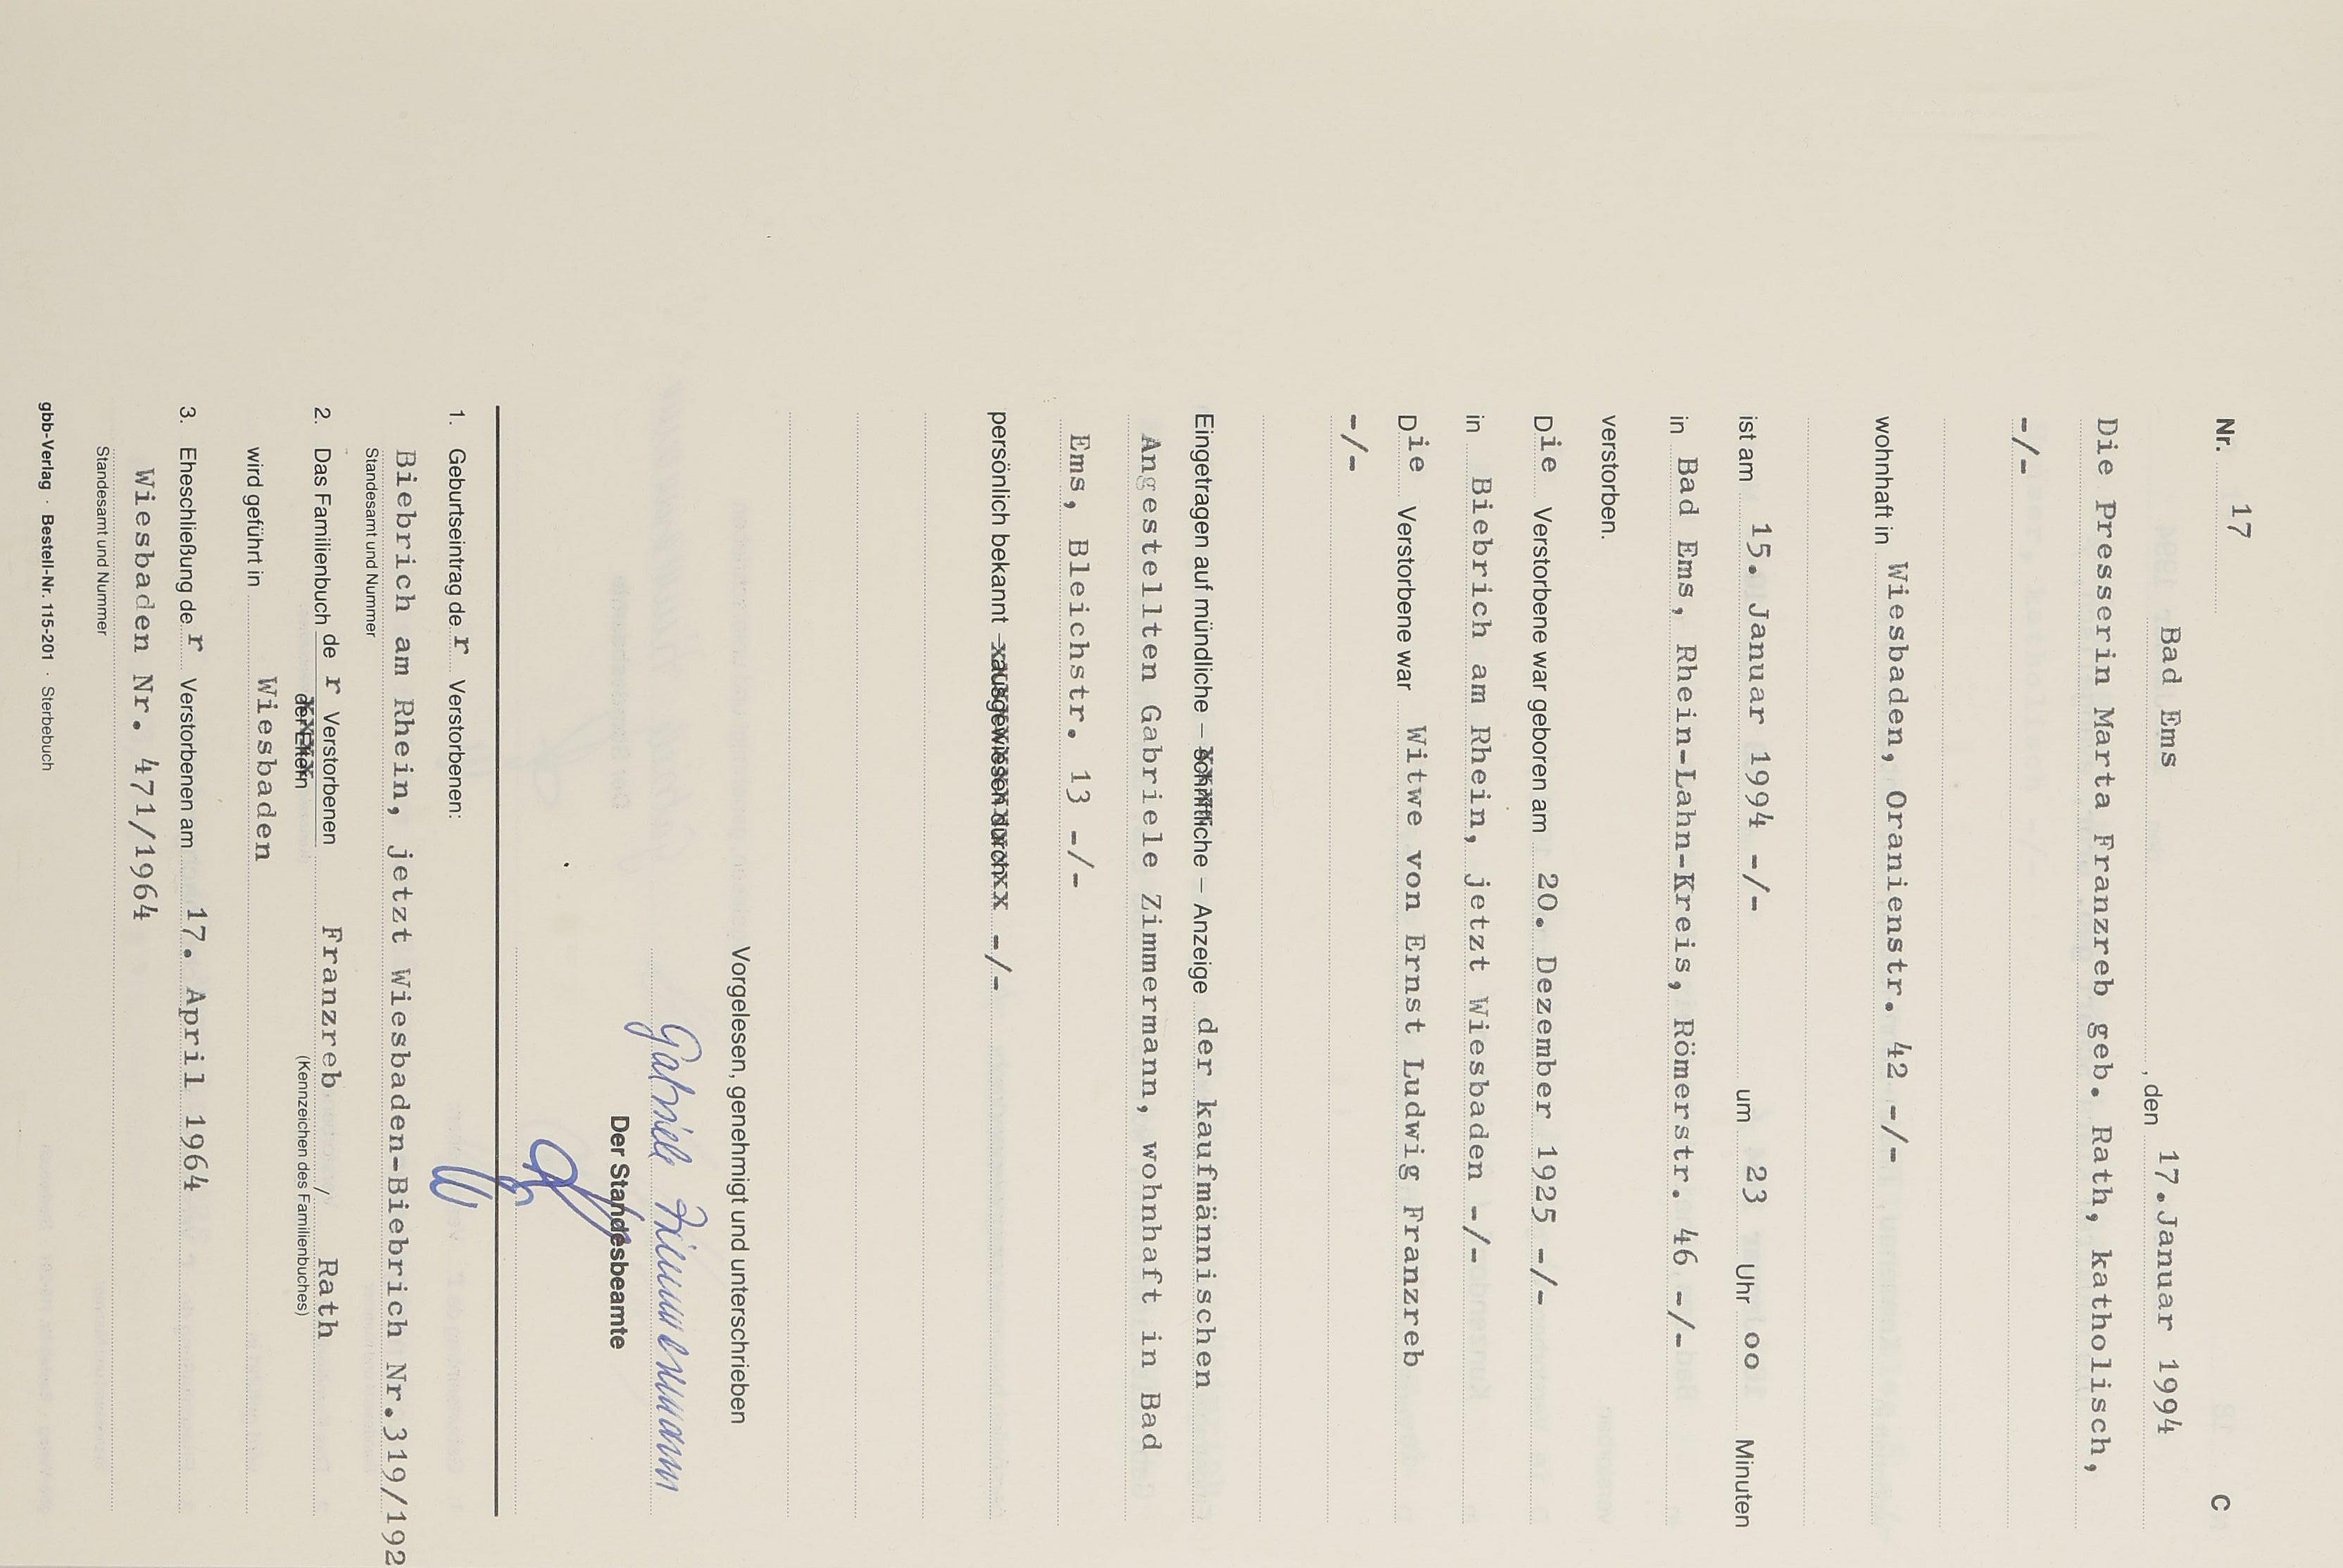 Nr. 17 C
Bad Ems, den 17.Januar 1994
Die Presserin Marta Franzreb geb. Rath, katholisch,
-/-
wohnhaft in Wiesbaden, Oranienstr. 42 -/-
ist am 15. Januar 1994 -/- um 23 Uhr oo Minuten
in Bad Ems, Rhein-Lahn-Kreis, Römerstr. 46 -/-
verstorben.
Die Verstorbene war geboren am 20. Dezember 1925 -/-
in Biebrich am Rhein, jetzt Wiesbaden -/-
Die Verstorbene war Witwe von Ernst Ludwig Franzreb
-/-
Eingetragen auf mündliche – schriftliche – Anzeige der kaufmännischen
Angestellten Gabriele Zimmermann, wohnhaft in Bad
Ems, Bleichstr. 13 -/-
persönlich bekannt – ausgewiesen durch -/-
Vorgelesen, genehmigt und unterschrieben
Gabriele Zimmermann
Der Standesbeamte
1. Geburtseintrag der Verstorbenen:
Biebrich am Rhein, jetzt Wiesbaden-Biebrich Nr.319/192
Standesamt und Nummer
2. Das Familienbuch der Verstorbenen Franzreb / Rath
der Eltern (Kennzeichen des Familienbuches)
wird geführt in Wiesbaden
3. Eheschließung der Verstorbenen am 17. April 1964
Wiesbaden Nr. 471/1964
Standesamt und Nummer
gbb-Verlag · Bestell-Nr. 115-201 · Sterbebuch